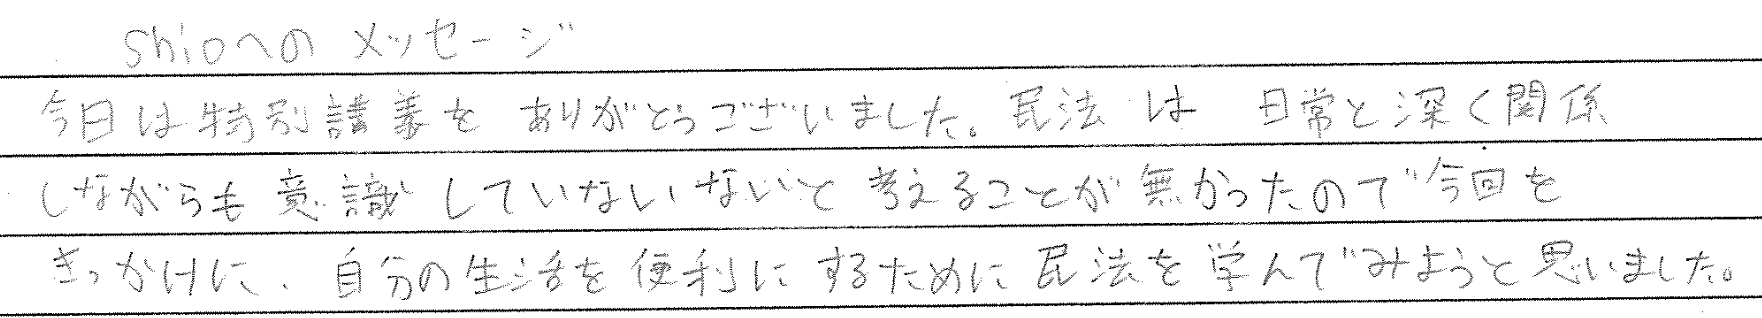 shioへのメッセージ
今日は特別講義をありがとうございました。民法は日常と深く関係
しながらも意識していないないと考えることが無かったので今回を
きっかけに、自分の生活を便利にするために民法を学んでみようと思いました。